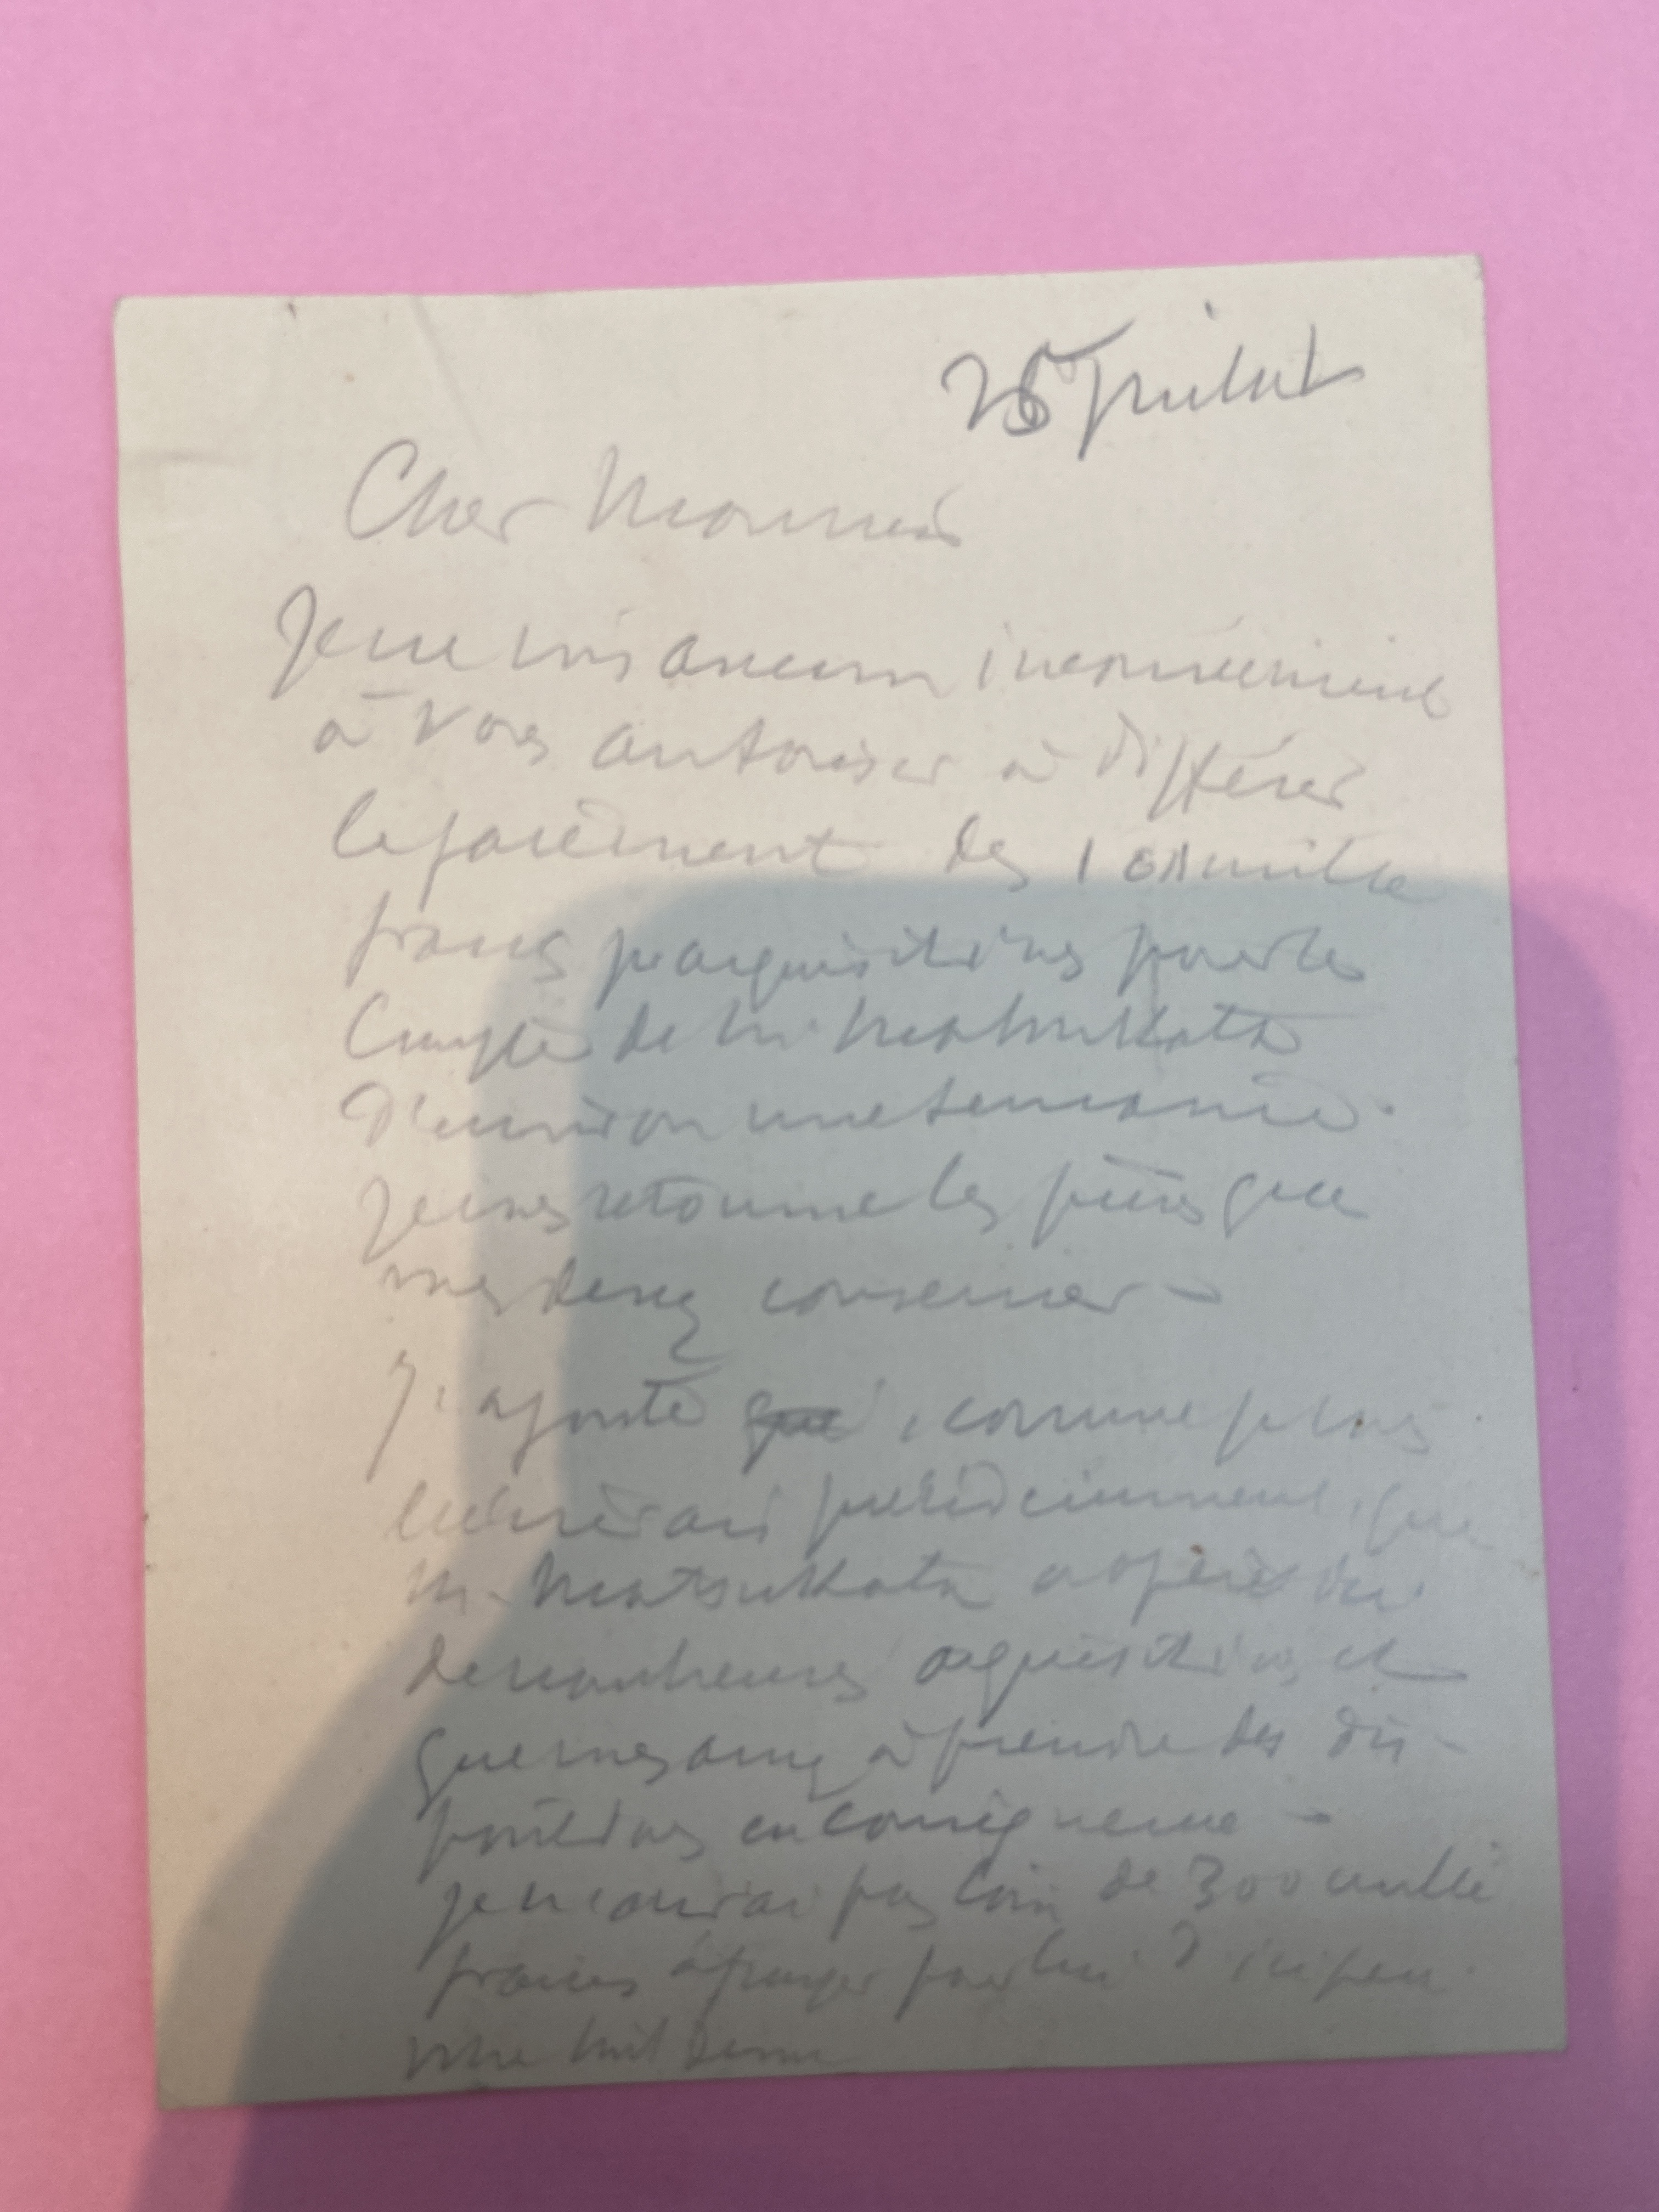 25 Juillet
Cher Monsieur
Je ne vois aucun inconvénient
à vous autoriser à différer
le paiement des 100 mille
francs pr acquisitions pour le
Compte de M. Matsukata
d'environ une semaine.
Je vous retourne les pièces que
vous devez conserver –
J'ajoute que, comme je vous
l'écrirai précédemment, que
M. Matsukata a opéré ici
de nombreuses acquisitions et
que vous aurez à prendre des dis-
positions en conséquence –
Je n'aurai pas loin de 300 mille
francs à payer pour lui d'ici peu.
Votre